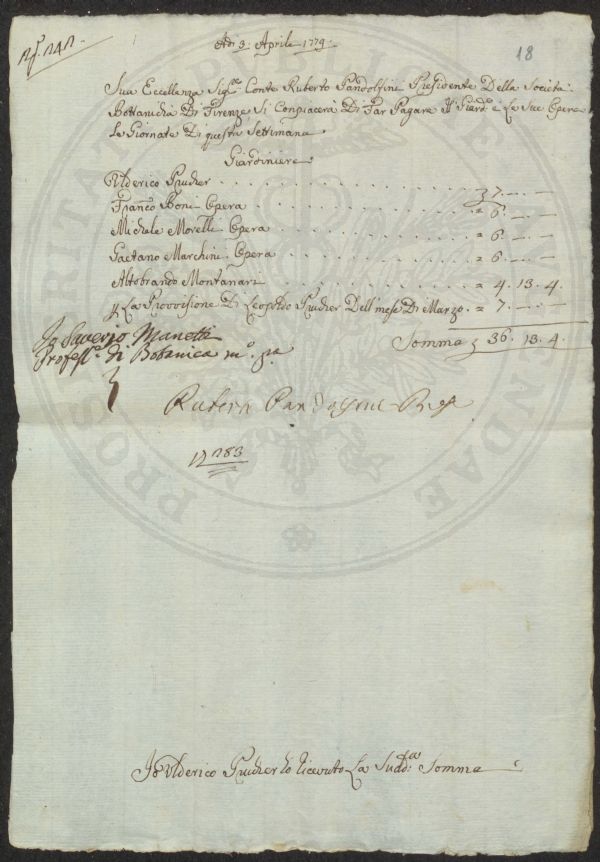 nº. 242.
18
Adì 3. Aprile 1779.
Sua Eccellenza Sigre. Conte Ruberto Pandolfini Presidente Della Società
Bottanicha Di Firenze Si Conpiacerà Di Far Pagare Il Giardo. e Le Sue Opere
Le Giornate Di questa Settimana
Giardiniere
Ulderico Prucher . . . . . . . 7.—.—
Franco Boni Opera . . . . . . . = 6.—.—
Michele Morelli Opera . . . . . . . = 6.—.—
Gaetano Marchini Opera . . . . . . . = 6.—.—
Altobrando Montanari . . . . . . . = 4. 13. 4.
La Provvisione Di Leopoldo Prucher Dell'mese Di Marzo. = 7.—.—
Somma 36. 13. 4.
Io Saverio Manetti
Profesre. di Botanica mº. pa.
Ruberto Pandolfini Pres
283
Io Ulderico Prucher ho ricevuto La Sudda. Somma
PROSPERITATI PUBLICAE AUGENDAE